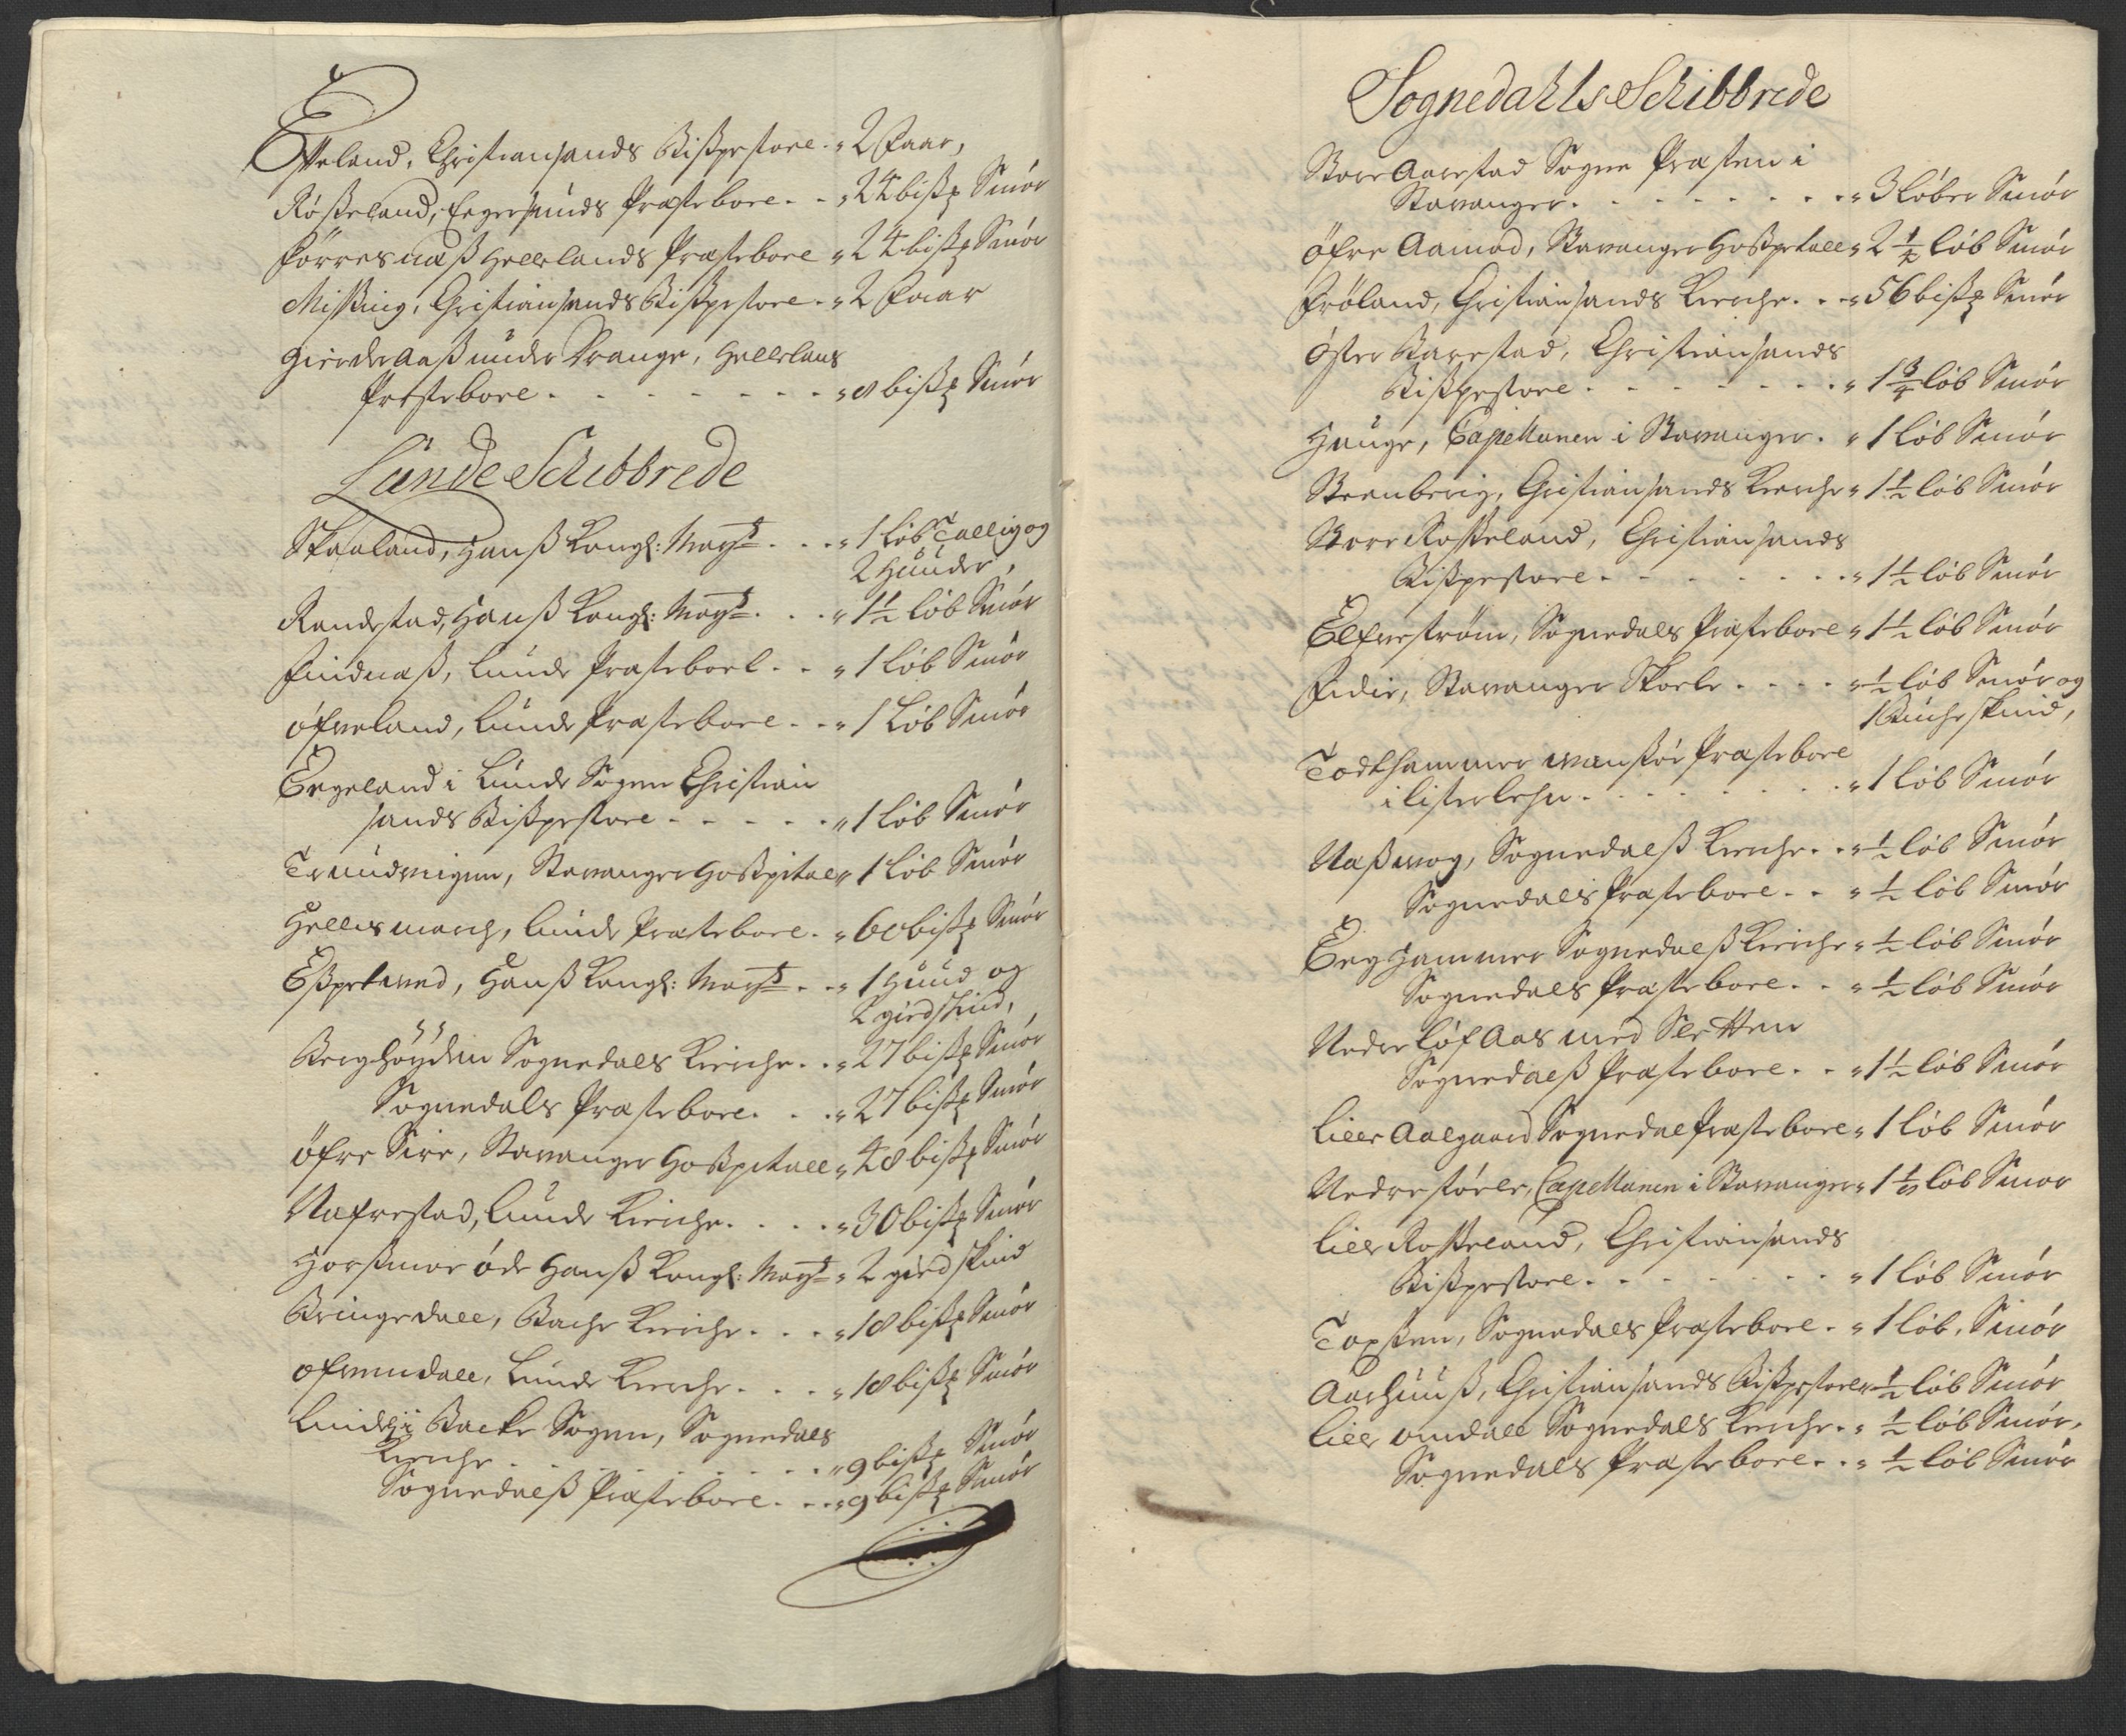 Etteland, Christiansands Bißpestoel. „ 2 Faar,
Røßeland, Eegersunds Præstebore. . „ 24 bißp Smør
Førresnæß Hellelands Præstebore „ 24 bißp Smør
Mißing, Christiansands Bißpestoel. „ 2 Faar
Gierde Aaß under Drange, Hellelans
Prestebore. . . . . . . „ 8 bißp Smør
Lunde Schibbrede
Skaaland, Hanß Kongl: Mayt. . . „ 1 Løb Tallig og
2 Huuder,
Raudstad, Hanß Kongl: Mayt. . . „ 1½ løb Smør
Findnæß, Lunde Præsteboel. . „ 1 Løb Smør
Øfreland, Lunde Præstebore. . „ 1 Løb Smør
Eegeland i Lunde Sogen Christian
sands Bißpestoel . . . . . „ 1 Løb Smør
Truudvigen, Stavanger Hoßpital „ 1 Løb Smør
Hellesmarch, Lunde Præstebore. „ 60 bißp Smør
Eßpetved, Hanß Kongl: Mayt. . „ 1 Huud og
2 giedskind,
Berghøyden Sognedals Kierche. . „ 27 bißp Smør
Sognedals Præstebore. . . „ 27 bißp Smør
Øfre Sire, Stavanger Hoßpitall „ 48 bißp Smør
Nafrestad, Lunde Kierche. . . . „ 30 bißp Smør
Horßmor øde Hanß Kongl: Mayt „ 2 giedskind
Bringedall, Bache Kierche. . . „ 18 bißp Smør
Ofvendall, Lunde Kierche. . . „ 18 bißp Smør
Lindh i Backe Sogen, Sognedals
Kierche . . . . . . . „ 9 bißp Smør
Sognedalß Præstebore. . . „ 9 bißp Smør
Sognedahls Schibbrede
Store Aarstad Sogne Præsten i
Stavanger. . . . . . . „ 3 Løber Smør
Øfre Aamod, Stavanger Hoßpitall „ 2½ løb Smør
Frøland, Christiansands Kierche. . „ 56 bißp Smør
Øster Barstad, Christiansands
Bißpestoel . . . . . . . „ 1¾ løb Smør
Hauge, Capellanen i Stavanger. „ 1 løb Smør
Steenberig, Christiansands Kierche „ 1½ løb Smør
Store Roßeland, Christiansands
Bißpestoel. . . . . . . „ 1½ løb Smør
Elfvestrøm, Sognedals Præstebore „ 1½ løb Smør
Fidie, Stavanger Skoele . . . . „ ½ løb Smør og
1 Buchskind,
Todthammer Vanßøe Præstebore
i Listerlehn. . . . . . . „ 1 løb Smør
Naßvog, Sognedalß Kierche. . „ ½ løb Smør
Sognedals Præstebore. . „ ½ løb Smør
Eeg Hammer Sognedalß Kierche „ ½ løb Smør
Sognedals Præstebore. . „ ½ løb Smør
Neder Løf Aas med Sletten
Sognedalß Præstebore. . „ 1½ løb Smør
Lille Aalgaard Sognedal Præstebore „ 1 løb Smør
Nedre Støele, Capellanen i Stavanger „ 1½ løb Smør
Lille Roßeland, Christiansands
Bißpestoel. . . . . . . „ 1 løb Smør
Toxßem, Sognedals Præstebore. „ 1 løb, Smør
Aarhuuß, Christiansands Bißpestoel „ ½ løb Smør
Lille Omdall Sognedals Kierche. „ ½ løb Smør.
Sognedals Præstebore. . „ ½ løb Smør